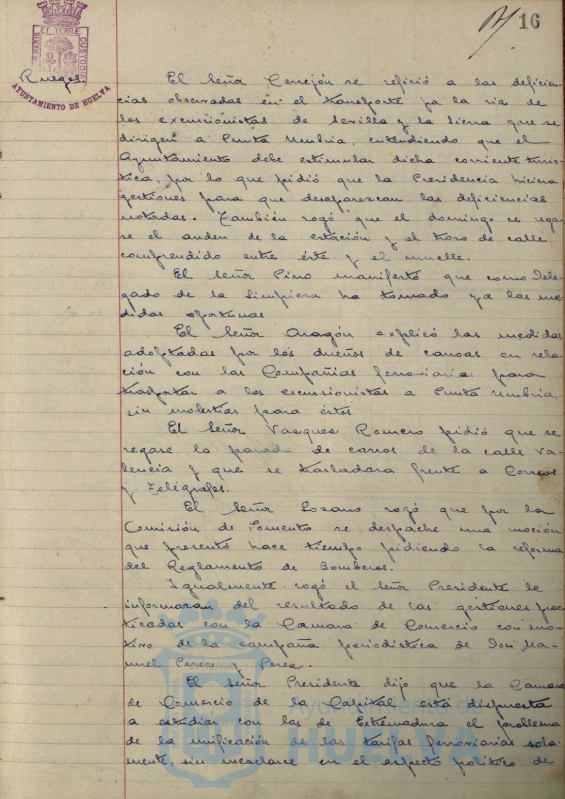 16
Ruegos
AYUNTAMIENTO DE HUELVA
El Señor Cerrejón se refirió a las deficien-
cias observadas en el transporte pa la ria de
los excursionistas de Sevilla y la Sierra que se
dirigen a Punta Umbria, entendiendo que el
Ayuntamiento debe estimular dicha corriente turis-
tica, por lo que pidió que la Presidencia hiciera
gestiones para que desaparezcan las deficiencias
notadas. También rogó que el domingo se rega-
se el anden de la estación y el trozo de calle
comprendido entre éste y el muelle.
El Señor Pino manifestó que como Dele-
gado de la Limpieza ha tomado ya las me-
didas oportunas
El Señor Aragón explicó las medidas
adoptadas por los dueños de canoas en rela-
ción con las Compañias ferroviarias para
trasportar a los excursionistas a Punta Umbria,
sin molestias para éstos
El Señor Vasques Romero pidió que se
regase la parada de carros de la calle Va-
lencia y que se trasladara frente a Correos
y Telégrafos.
El Señor Lozano rogó que por la
Comisión de Fomento se despache una moción
que presentó hace tiempo pidiendo la reforma
del Reglamento de Bomberos.
Igualmente rogó el Señor Presidente le
informaran del resultado de las gestiones prac-
ticadas con la Camara de Comercio con mo-
tivo de la campaña periodistica de Don Ma-
nuel Perez y Perez.
El Señor Presidente dijo que la Camara
de Comercio de la Capital está dispuesta
a estudiar con las de Extremadura el problema
de la unificación de las tarifas ferroviarias sola-
mente, sin mezclarse en el aspecto politico de
Ayuntamiento de
HUELVA